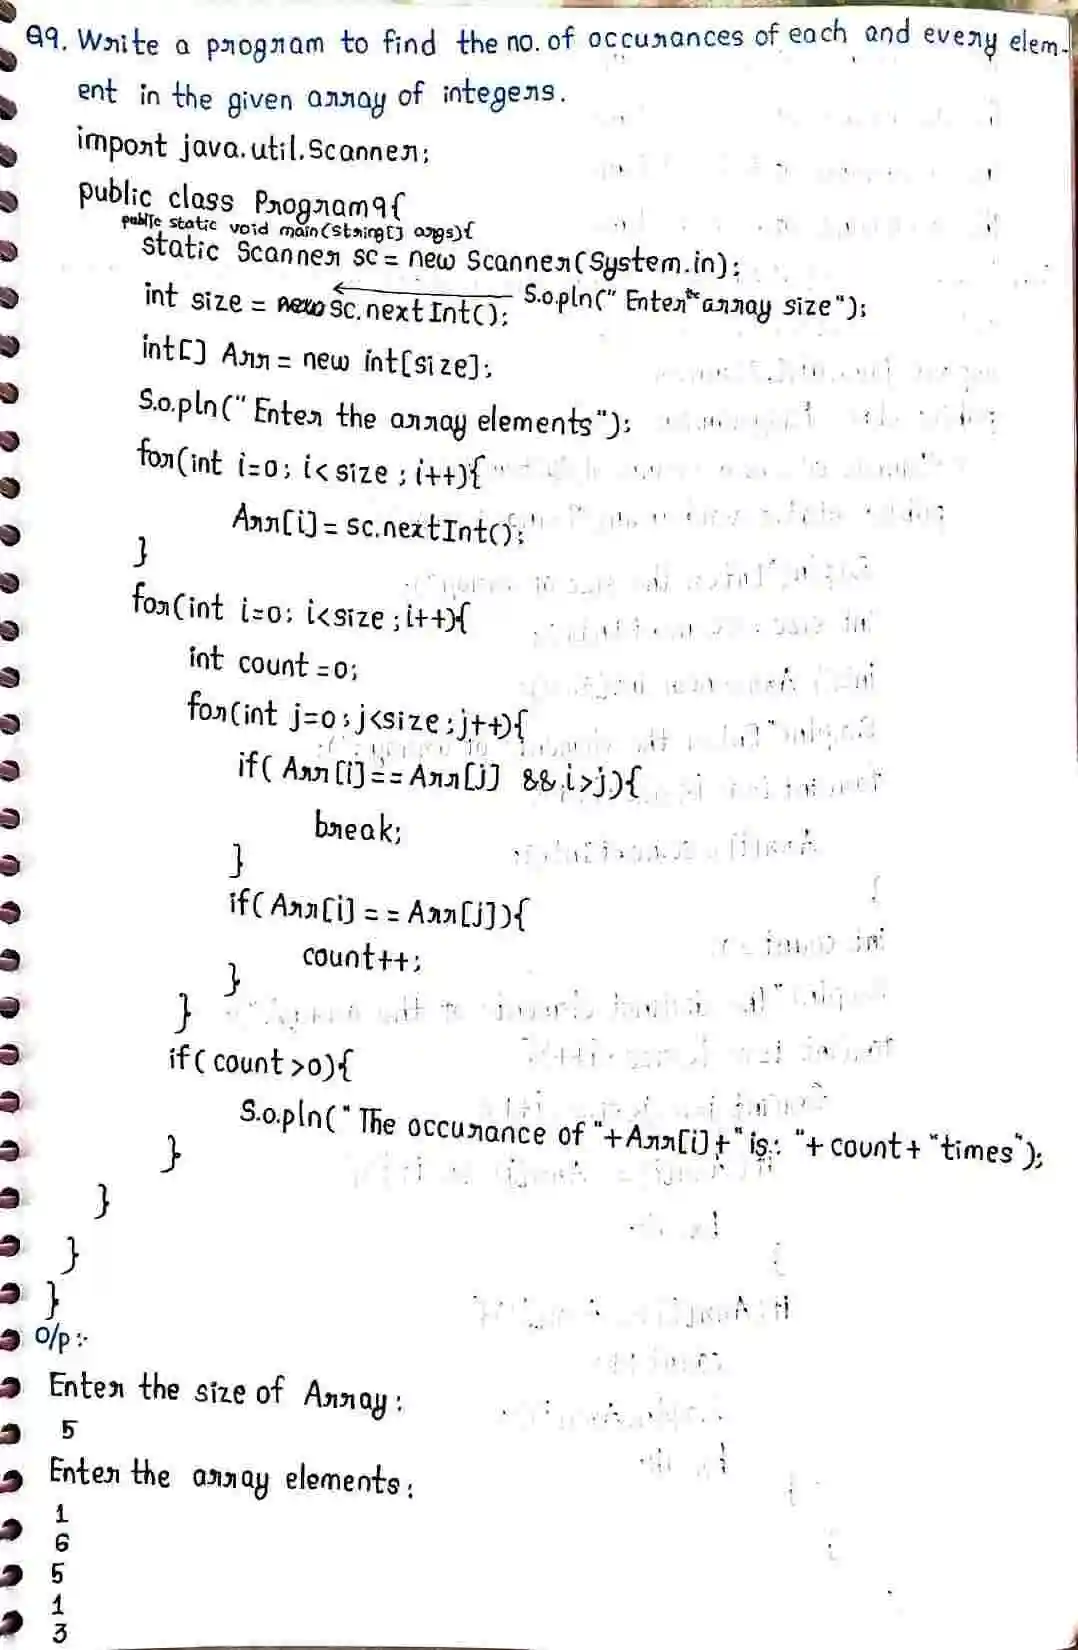 Q9. Write a program to find the no. of occurances of each and every elem-
ent in the given array of integers.
import java.util.Scanner;
public class Program9{
public static void main(String[] args){
static Scanner sc = new Scanner(System.in);
S.o.pln("Enter the array size");
int size = new sc.nextInt();
int[] Arr = new int[size];
S.o.pln("Enter the array elements");
for(int i=0; i<size; i++){
Arr[i] = sc.nextInt();
}
for(int i=0; i<size; i++){
int count =0;
for(int j=0; j<size; j++){
if( Arr[i] == Arr[j] && i>j){
break;
}
if( Arr[i] == Arr[j]){
count++;
}
}
if( count >0){
S.o.pln("The occurance of "+Arr[i]+" is: "+ count+ "times");
}
}
}
}
O/p:-
Enter the size of Array:
5
Enter the array elements:
1
6
5
1
3